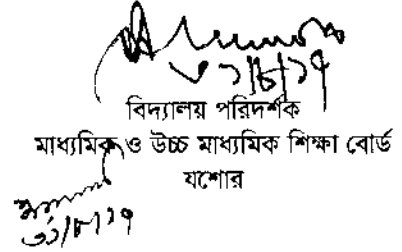 ৩১/৮/১৭
বিদ্যালয় পরিদর্শক
মাধ্যমিক ও উচ্চ মাধ্যমিক শিক্ষা বোর্ড
যশোর
৩১/৮/১৭